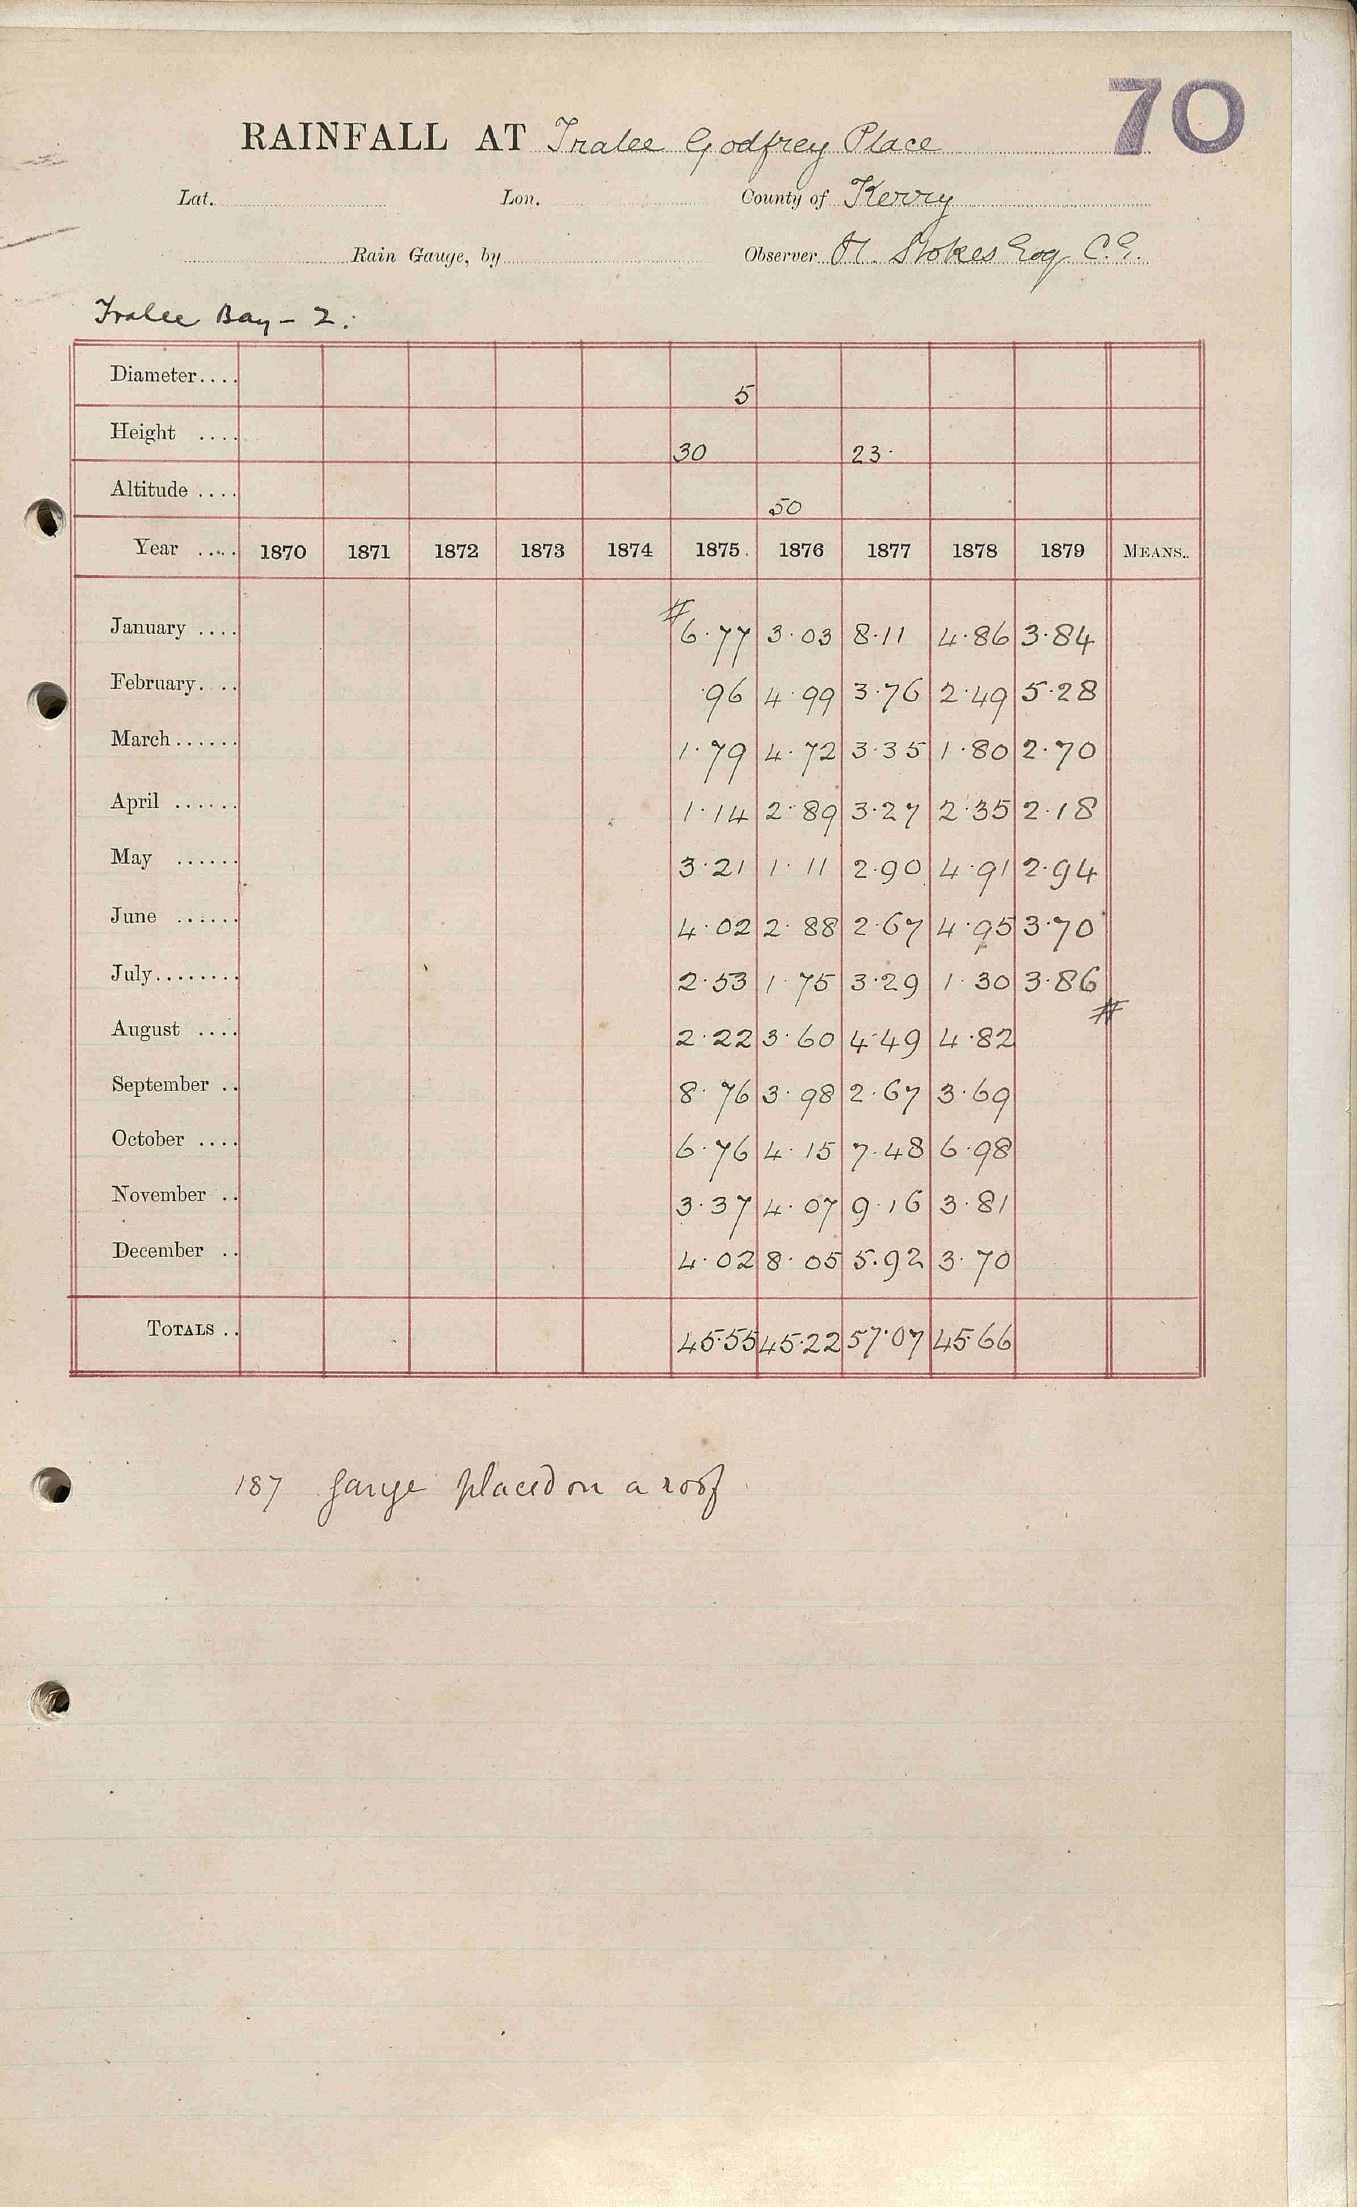 70
RAINFALL AT Tralee Godfrey Place
Lat. Lon. County of Kerry
Rain Gauge, by Observer H. Stokes Esq C.E.
Tralee Bay - 2.
Diameter.... 5
Height .... 30 23
Altitude .... 50
Year .... 1870 1871 1872 1873 1874 1875 1876 1877 1878 1879 MEANS..
#
January .... 6.77 3.03 8.11 4.86 3.84
February.... .96 4.99 3.76 2.49 5.28
March...... 1.79 4.72 3.35 1.80 2.70
April ...... 1.14 2.89 3.27 2.35 2.18
May ...... 3.21 1.11 2.90 4.91 2.94
June ...... 4.02 2.88 2.67 4.95 3.70
July........ 2.53 1.75 3.29 1.30 3.86
#
August .... 2.22 3.60 4.49 4.82
September .. 8.76 3.98 2.67 3.69
October .... 6.76 4.15 7.48 6.98
November .. 3.37 4.07 9.16 3.81
December .. 4.02 8.05 5.92 3.70
TOTALS .. 45.55 45.22 57.07 45.66
187 gauge placed on a roof